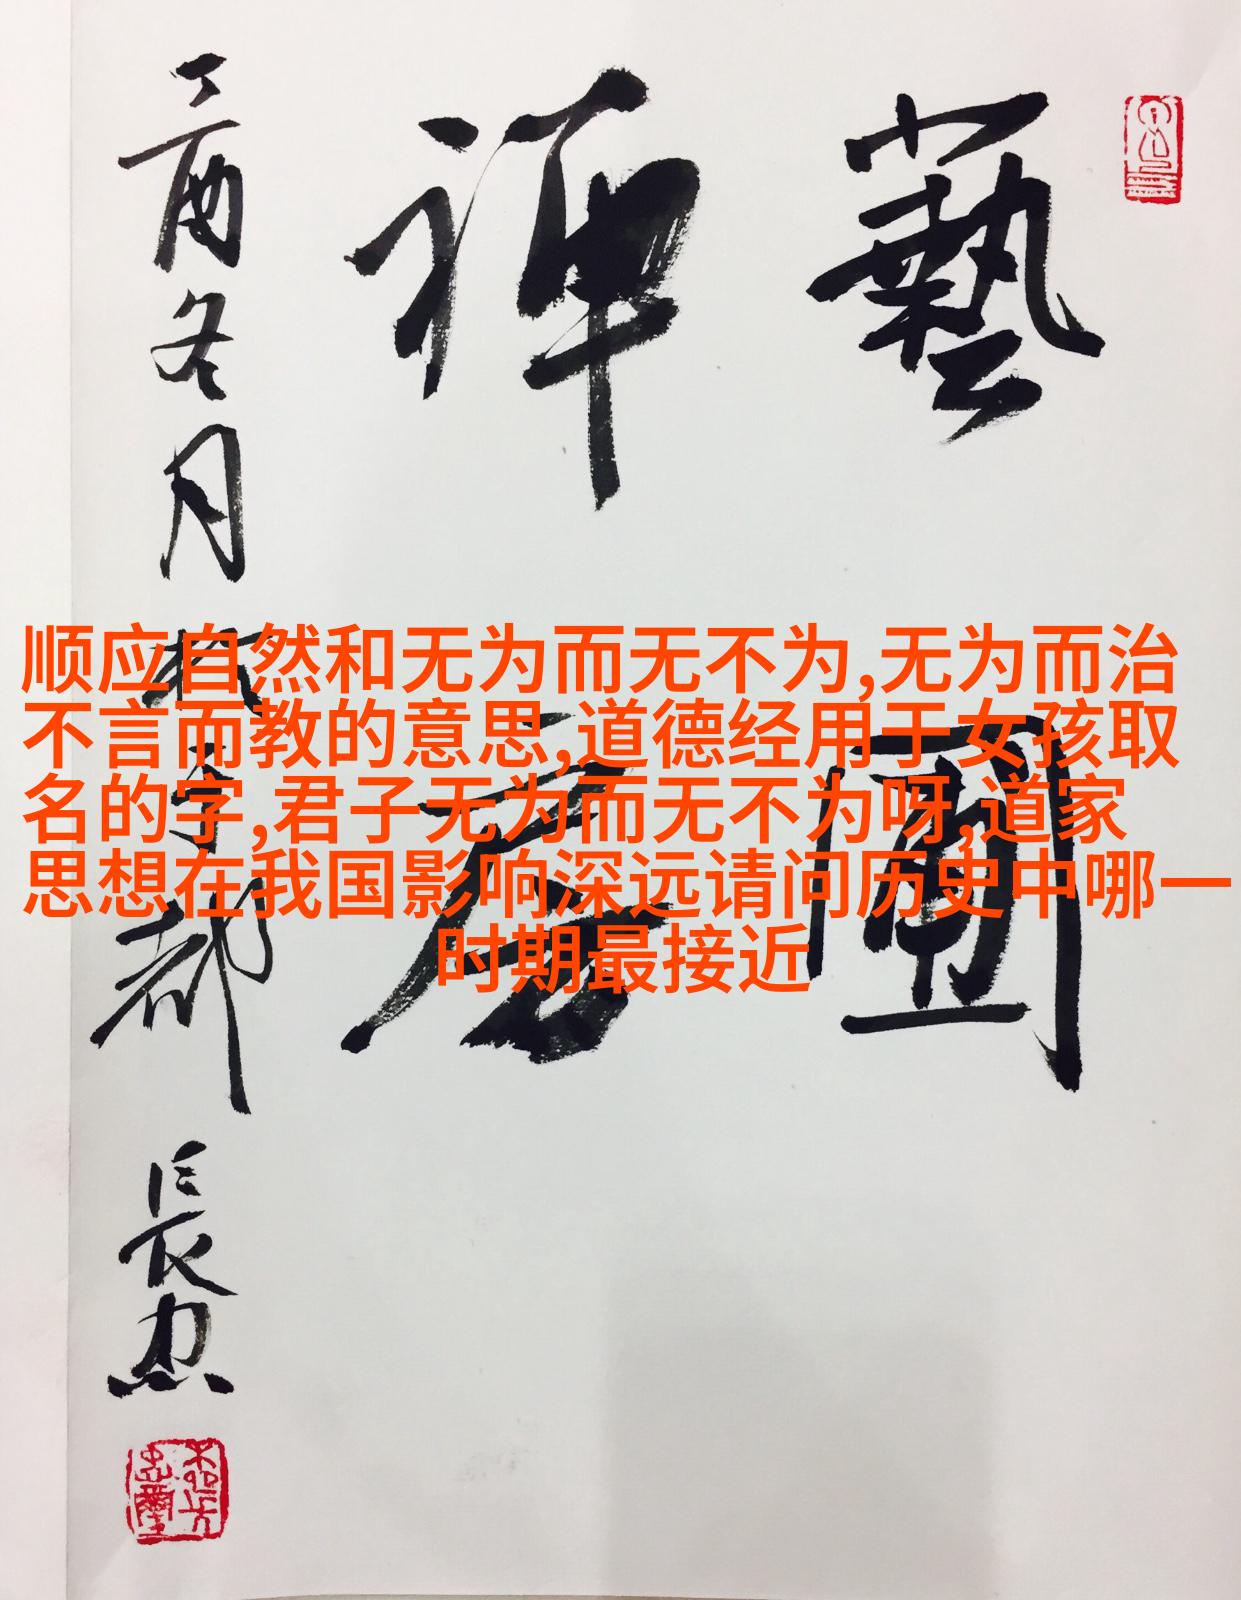 顺应自然和无为而无不为,无为而治
不言而教的意思,道德经用于女孩取
名的字,君子无为而无不为呀,道家
思想在我国影响深远请问历史中哪一
时期最接近
藝圃
禅
丁酉冬月都長忠